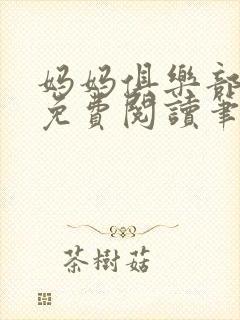 妈妈俱樂部
免費閱讀筆
茶樹菇